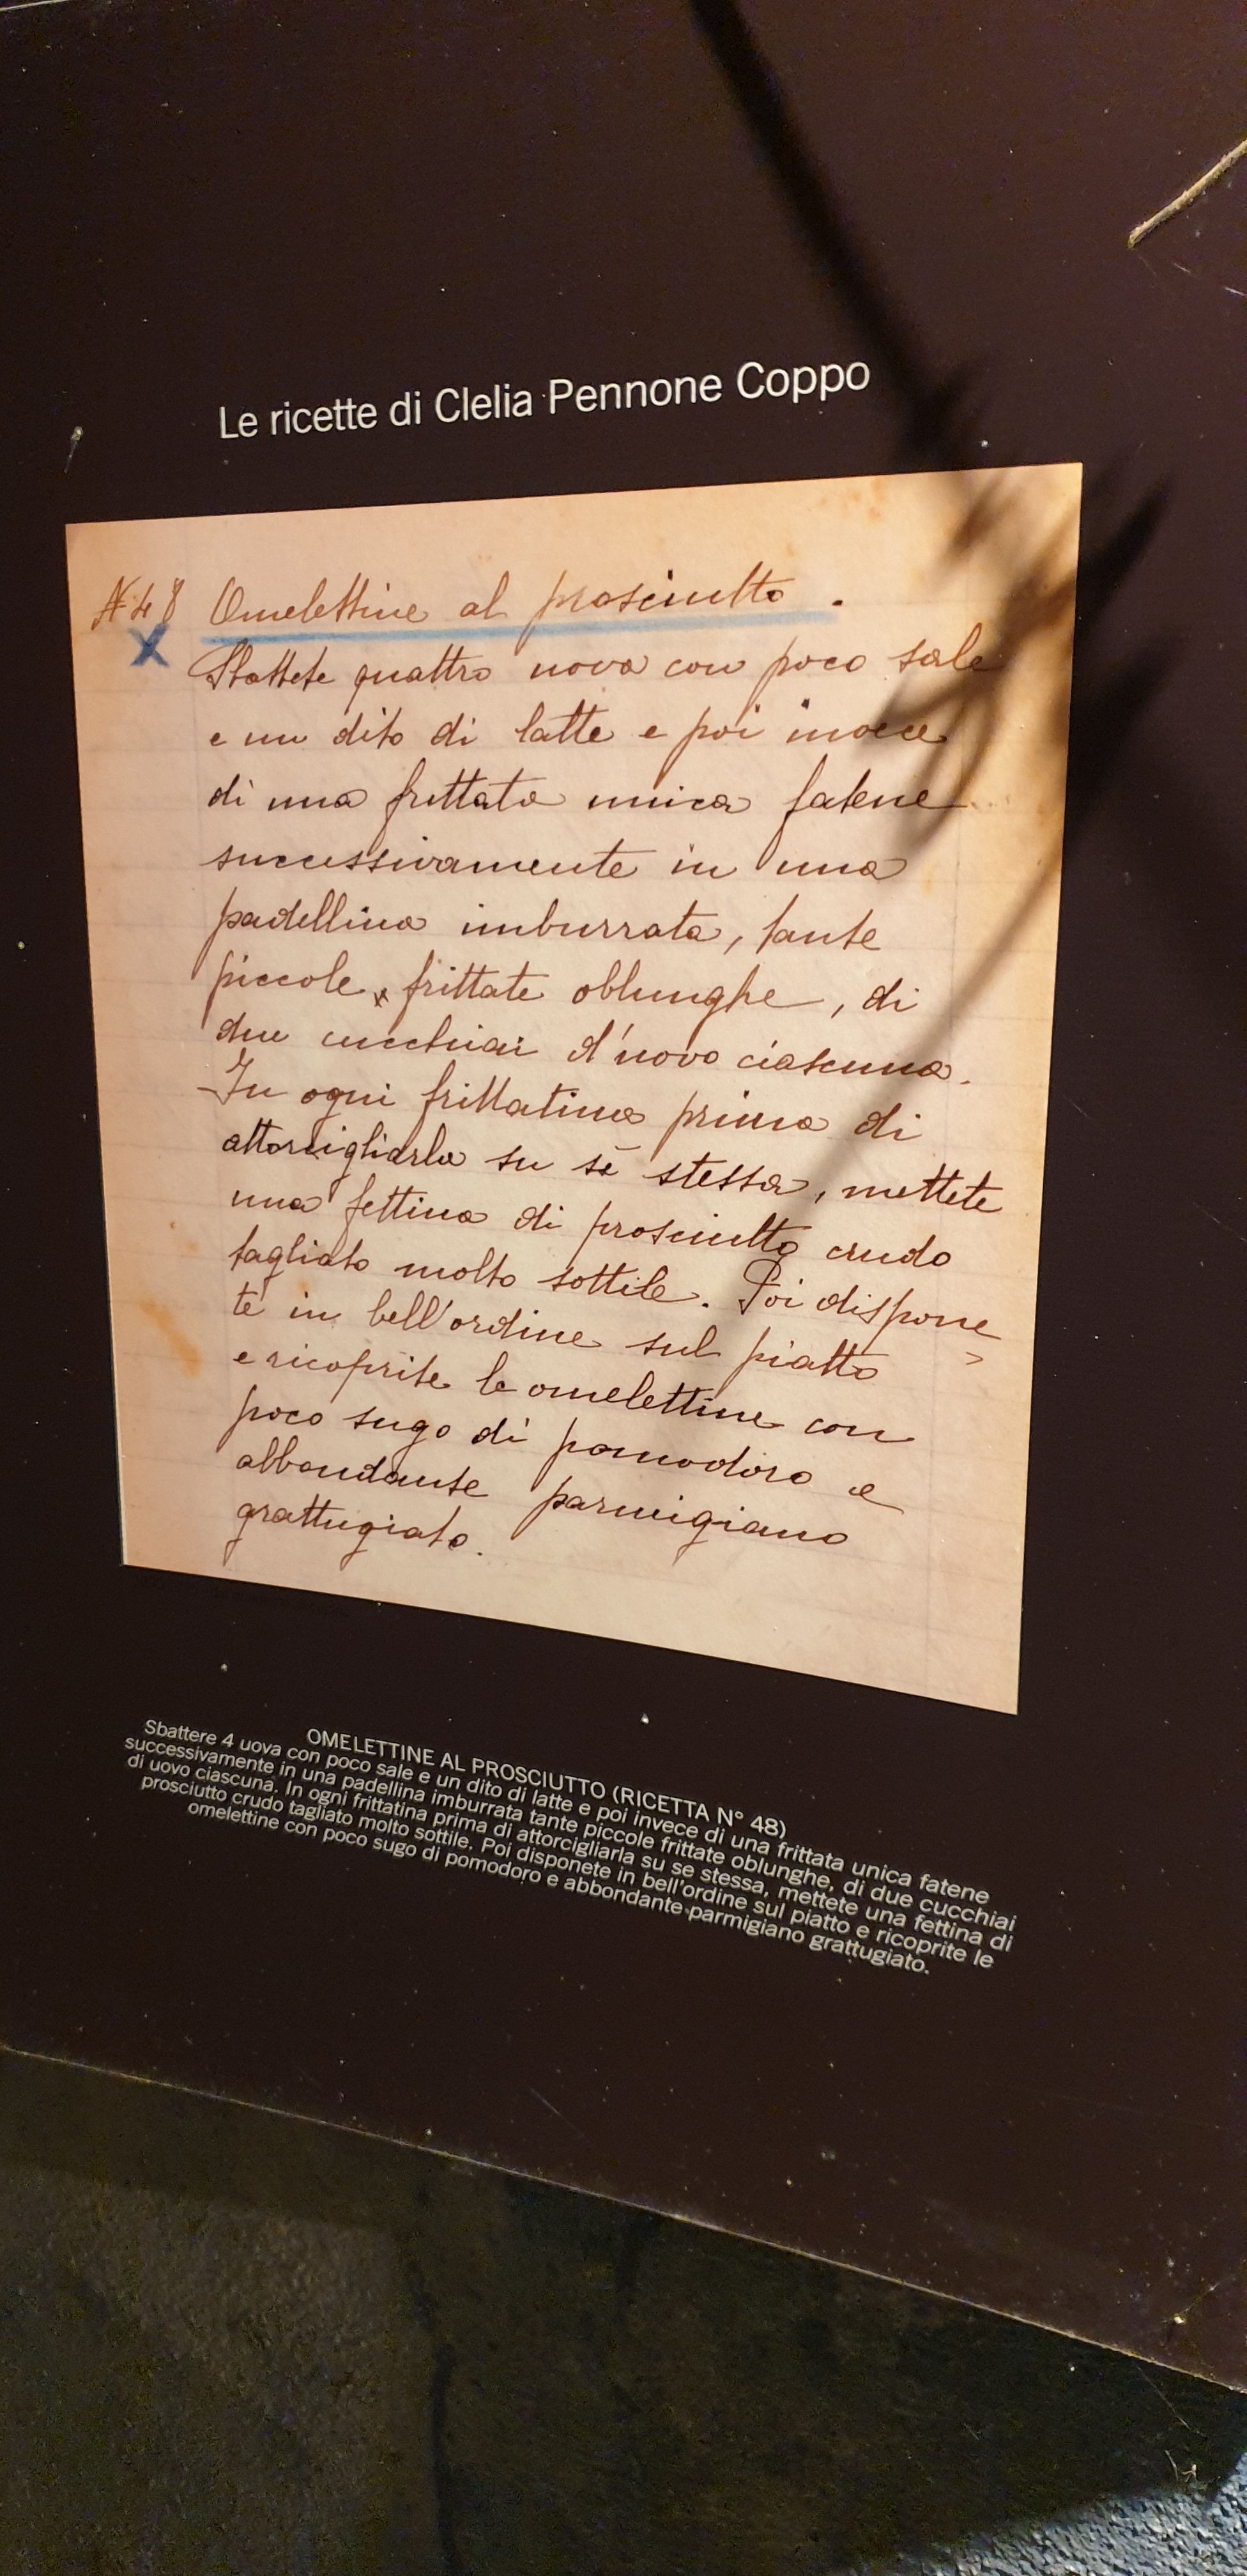 Le ricette di Clelia Pennone Coppo
N. 48 Omelettine al prosciutto.
Sbattete quattro uova con poco sale
e un dito di latte e poi invece
di una frittata unica fatene
successivamente in una
padellina imburrata, tante
piccole frittate oblunghe, di
due cucchiai d'uovo ciascuna.
In ogni frittatina prima di
attorcigliarla su sè stessa, mettete
una fettina di prosciutto crudo
tagliato molto sottile. Poi dispone=
te in bell'ordine sul piatto
e ricoprite le omelettine con
poco sugo di pomodoro e
abbondante parmigiano
grattugiato.
OMELETTINE AL PROSCIUTTO (RICETTA N° 48)
Sbattere 4 uova con poco sale e un dito di latte e poi invece di una frittata unica fatene
successivamente in una padellina imburrata tante piccole frittate oblunghe, di due cucchiai
di uovo ciascuna. In ogni frittatina prima di attorcigliarla su se stessa, mettete una fettina di
prosciutto crudo tagliato molto sottile. Poi disponete in bell'ordine sul piatto e ricoprite le
omelettine con poco sugo di pomodoro e abbondante parmigiano grattugiato.